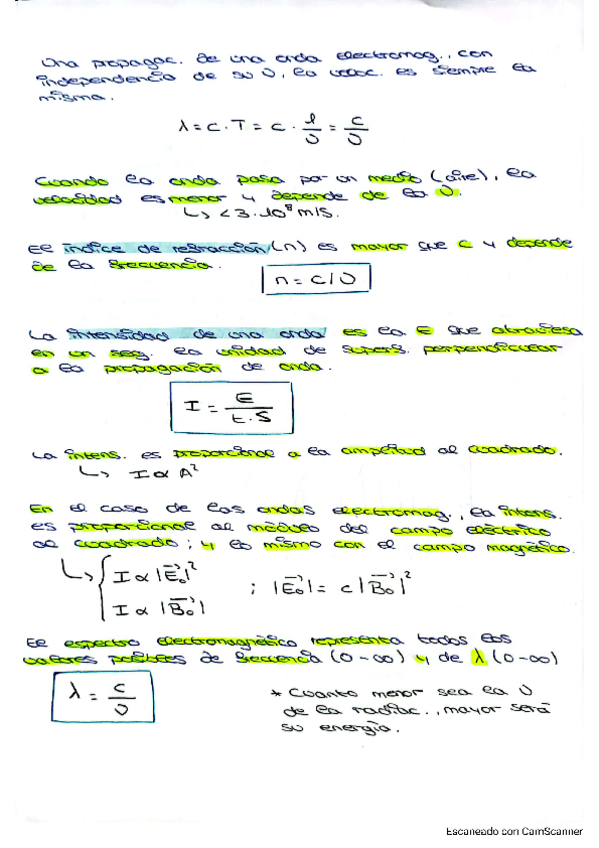 Una propagac. de una onda electromag., con
independencia de su υ, la veloc. es siempre la
misma.
λ = c · T = c · 1/υ = c/υ
Cuando la onda pasa por un medio (aire), la
velocidad es menor y depende de la υ.
↳ < 3·10⁸ m/s.
El índice de refracción (n) es mayor que c y depende
de la frecuencia.
n = c/υ
La intensidad de una onda es la E que atraviesa
en un seg. la unidad de superf. perpendicular
a la propagación de onda.
I = E/t·S
La intens. es proporcional a la amplitud al cuadrado.
↳ I α A²
En el caso de las ondas electromag., la intens.
es proporcional al módulo del campo eléctrico
al cuadrado; y lo mismo con el campo magnético.
↳ { I α |E₀|² ; |E₀| = c |B₀|²
I α |B₀|
El espectro electromagnético representa todos los
valores posibles de frecuencia (0 - ∞) y de λ (0 - ∞)
λ = c/υ
* Cuanto menor sea la υ
de la radiac., mayor será
su energía.
Escaneado con CamScanner